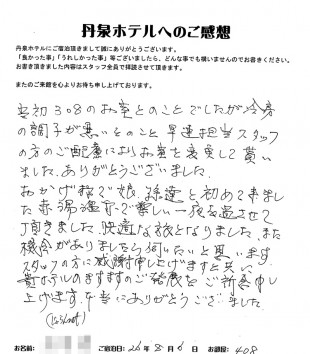 丹泉ホテルへのご感想
丹泉ホテルにご宿泊頂きまして誠にありがとうございます。
「良かった事」「うれしかった事」等ございましたら、どんな事でも構いませんのでお書きください。
お書き頂きました内容はスタッフ全員で拝読させて頂きます。
またのご来館を心よりお待ち申し上げております。
最初308のお室とのことでしたが冷房
の調子が悪いとのこと早速担当スタッフ
の方のご配慮によりお室を変更して貰い
ました。ありがとうございました。
おかげ様で娘、孫達と初めて来ました
赤湯温泉で楽しい一夜を過させて
頂きました。快適な旅となりました。また
機会がありましたら伺いたいと思います。
スタッフの方に感謝申し上げますと共に
貴ホテルのますますのご発展をご祈念申し
上げます。本当にありがとうございました
お名前:
ご宿泊日: 26年 8月 6日
お部屋: 408